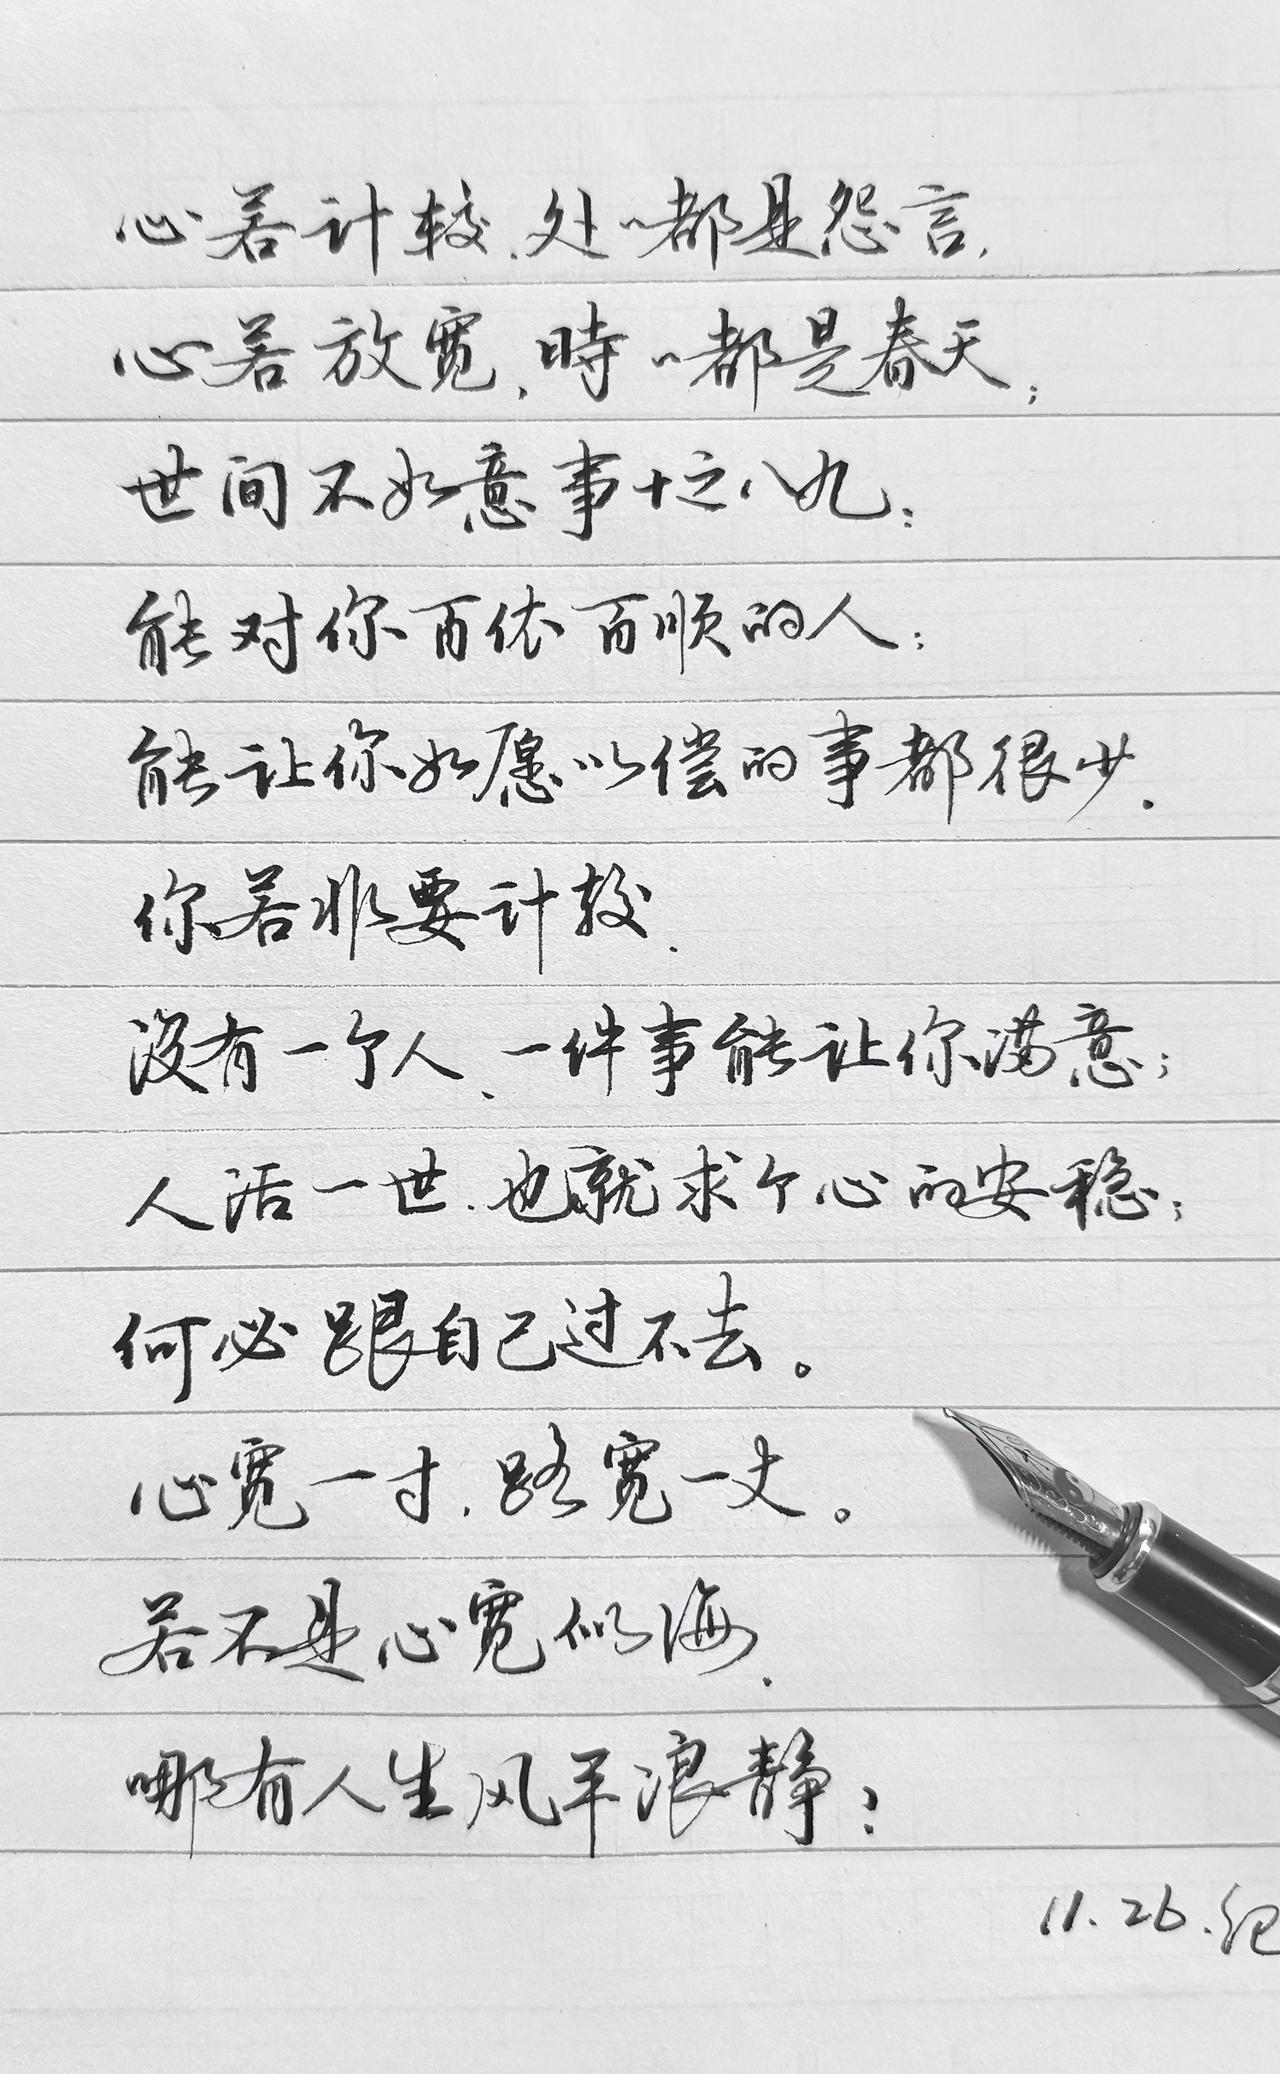 心若计较,处々都是怨言,
心若放宽,時々都是春天;
世间不如意事十之八九;
能对你百依百顺的人;
能让你如愿以偿的事都很少.
你若非要计较.
没有一个人、一件事能让你满意;
人活一世.也就求个心的安稳;
何必跟自己过不去。
心宽一寸.路宽一丈。
若不是心宽似海.
哪有人生风平浪静;
11.26.纪